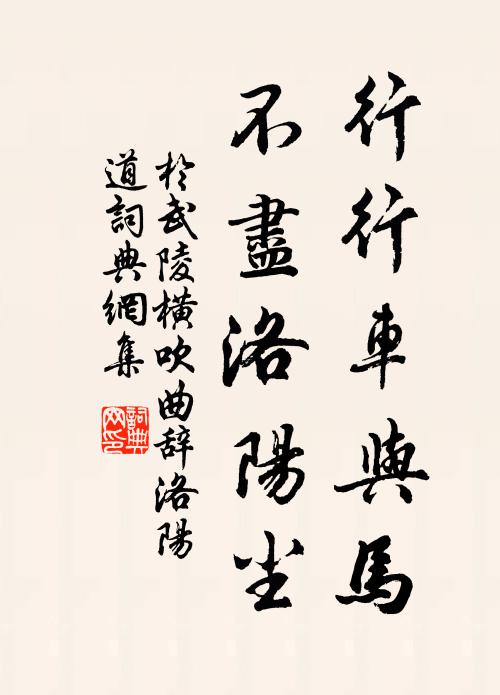 行行車與馬
不盡洛陽尘
於武陵橫吹曲辞洛陽
道詞典網集
詞典
网印